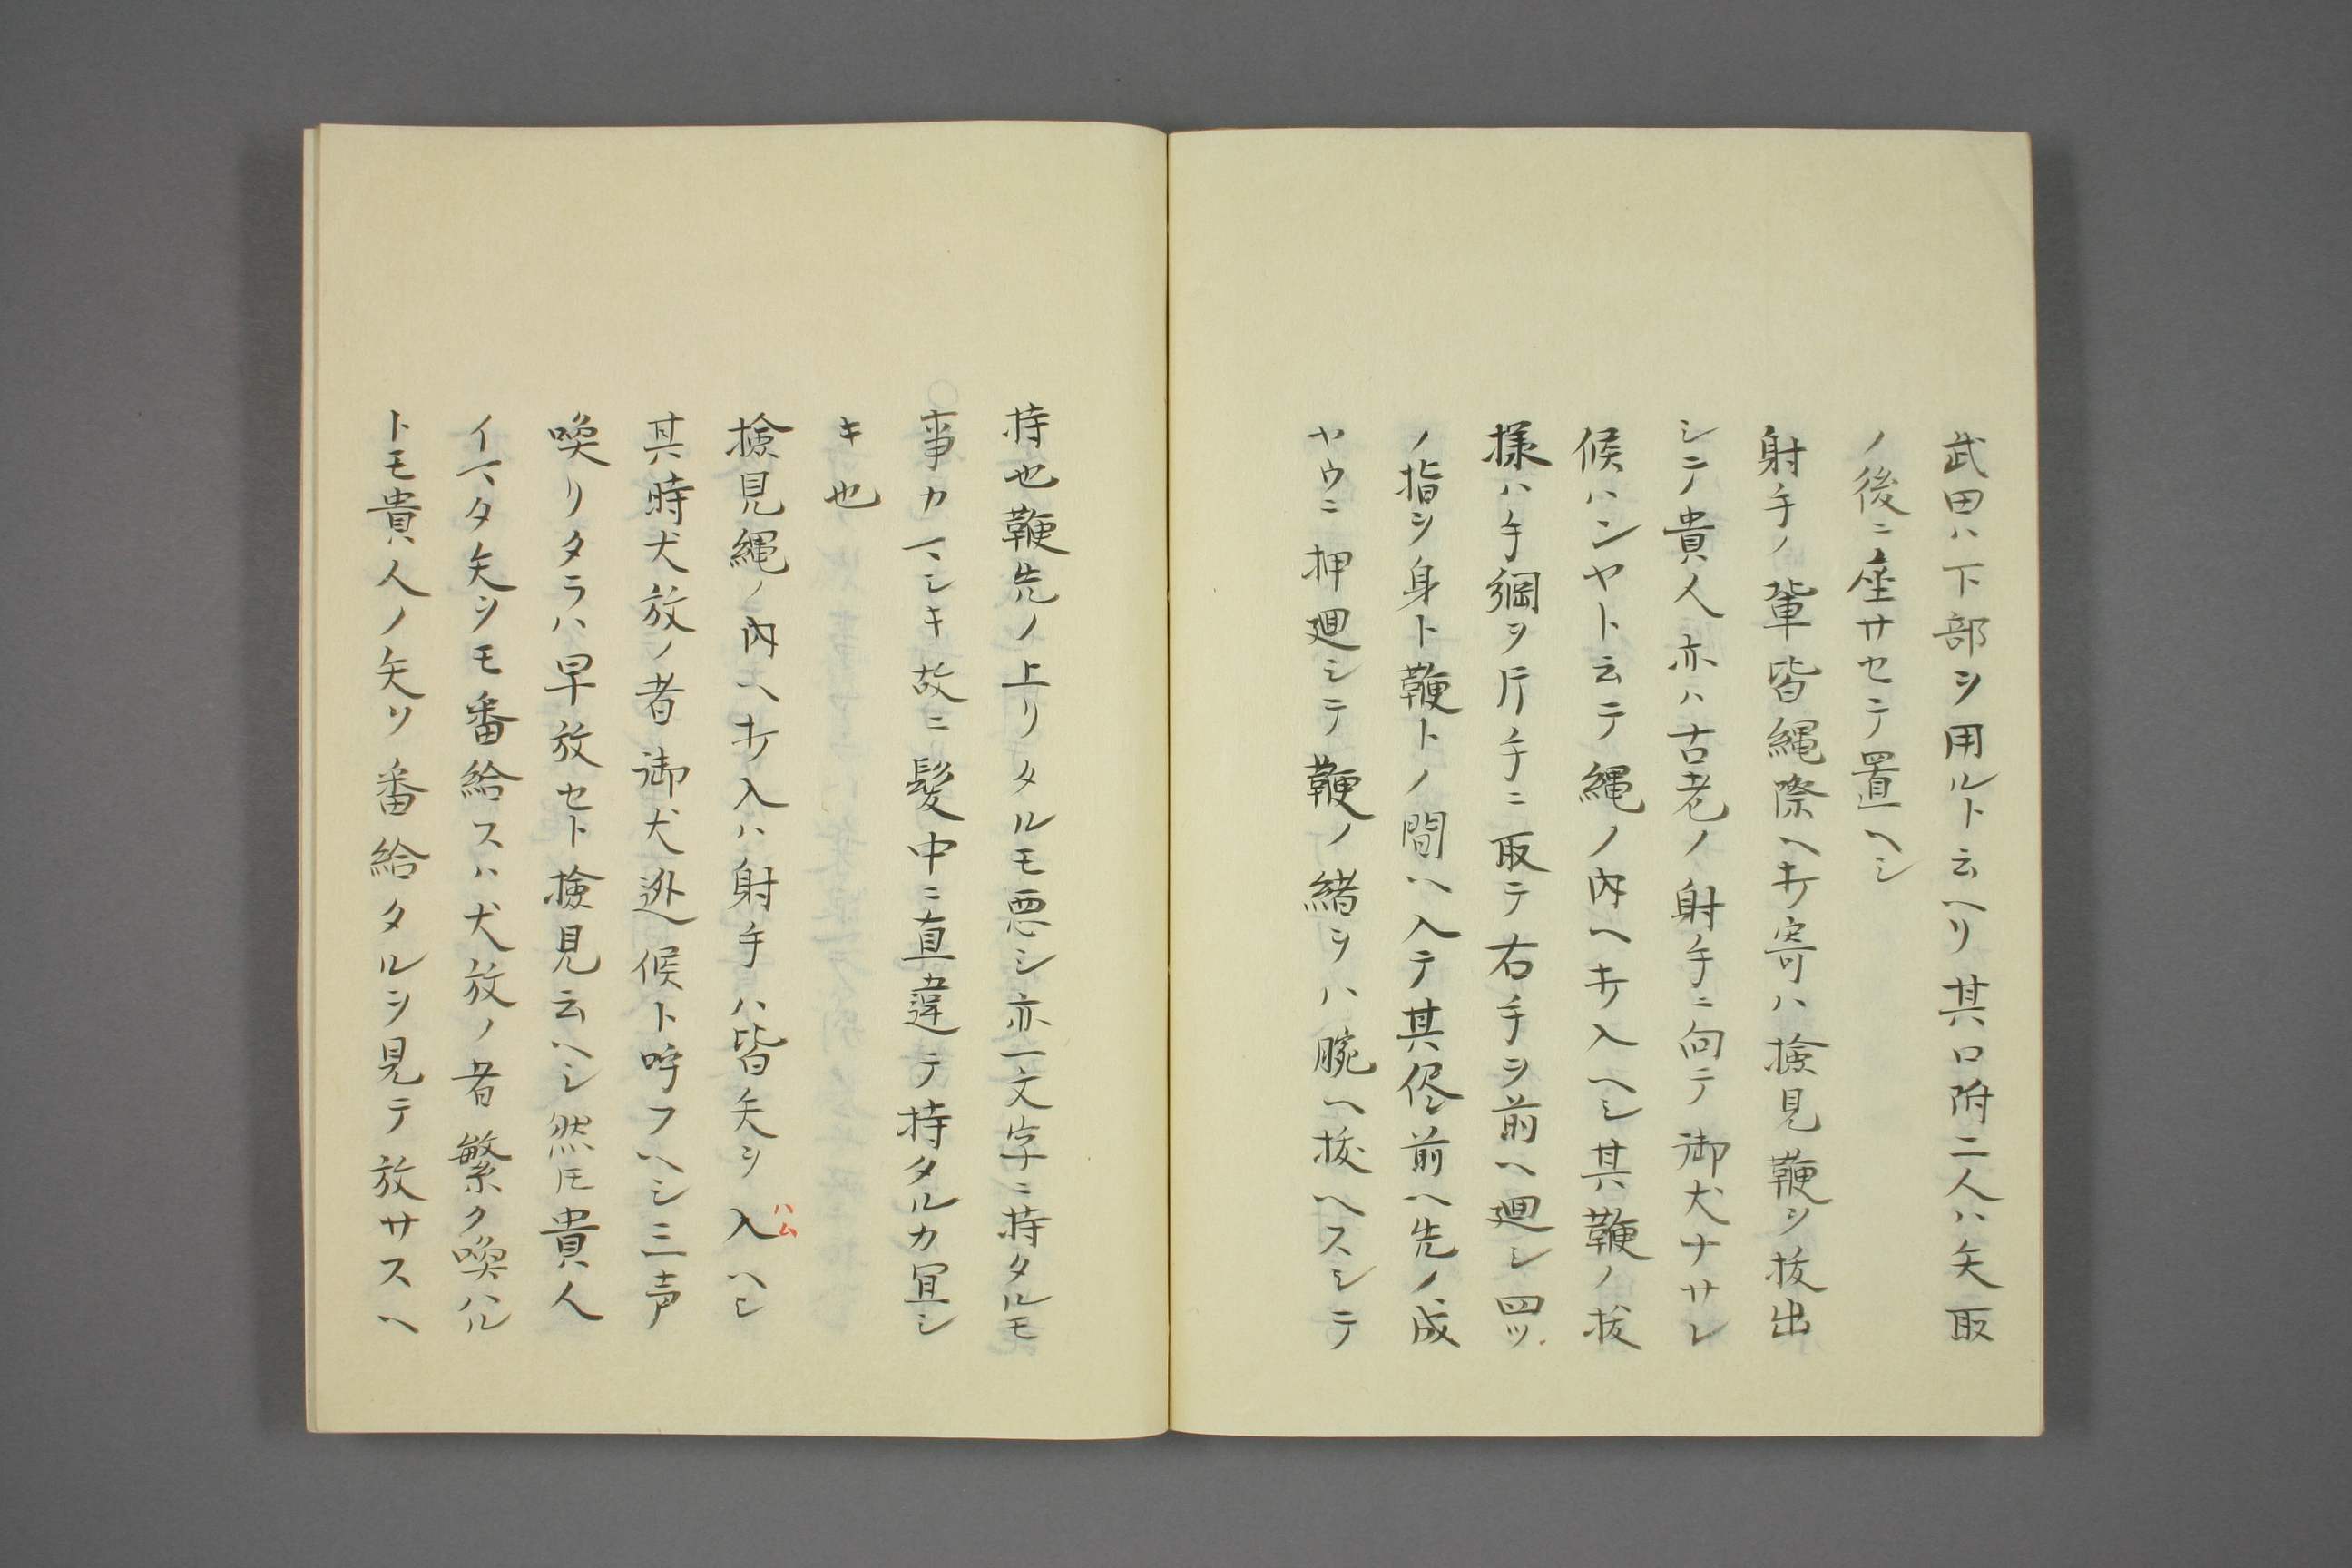 武田ハ下部ヲ用ルト云ヘリ其口附二人ハ矢取
ノ後ニ座サセテ置ヘシ
射手ノ輩皆縄際ヘ寄ハ検見鞭ヲ抜出
シテ貴人亦ハ古老ノ射手ニ向テ御犬ナサレ
候ハンヤト云テ縄ノ内ヘ入ヘシ其鞭ノ抜
様ハ手綱ヲ片手ニ取テ右手ヲ前ヘ廻シ四ツ
ノ指ヲ身ト鞭トノ間ヘ入テ其侭前ヘ先ノ成
ヤウニ押廻シテ鞭ノ緒ヲハ腕ヘ抜ヘスシテ
持也鞭先ノ上リタルモ悪シ亦一文字ニ持タルモ
事カマシキ故ニ髪中ニ直違テ持タルカ宜シ
キ也
検見縄ノ内ヘ入ハ射手ハ皆矢ヲ入ヘシ
ハム
其時犬放ノ者御犬逊候ト呼フヘシ三声
喚リタラハ早放セト検見云ヘシ然トモ貴人
イマタ矢ヲモ番給スハ犬放ノ者繁ク喚ハル
トモ貴人ノ矢ヲ番給タルヲ見テ放サスヘ